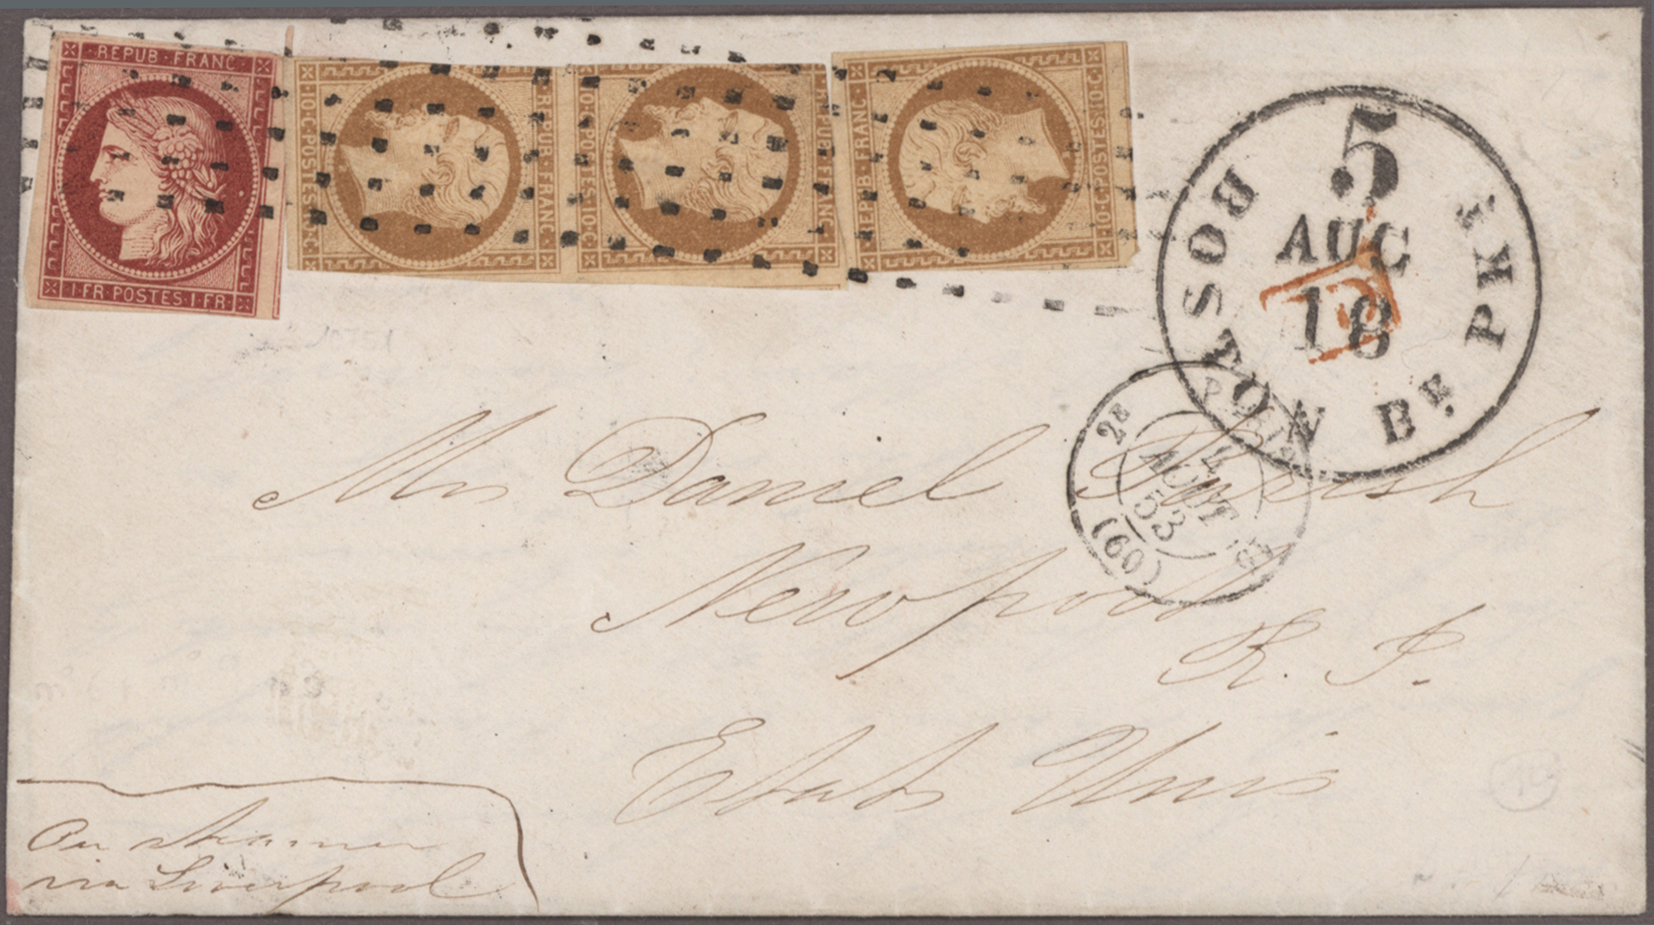 REPUB·FRANC·
1·FR·POSTES·1·FR·
10·C·POSTES·10·C·
REPUB·FRANC·
10·C·POSTES·10·C·
REPUB·FRANC·
REPUB·FRANC·
10·C·POSTES·10·C·
BOSTON Br. PKT
5
AUG
18
PD
2E PARIS 2E
4
AOUT
53
(60)
Mrs Daniel Parish
Newport
R. I.
Etats Unis
Per steamer
via Liverpool